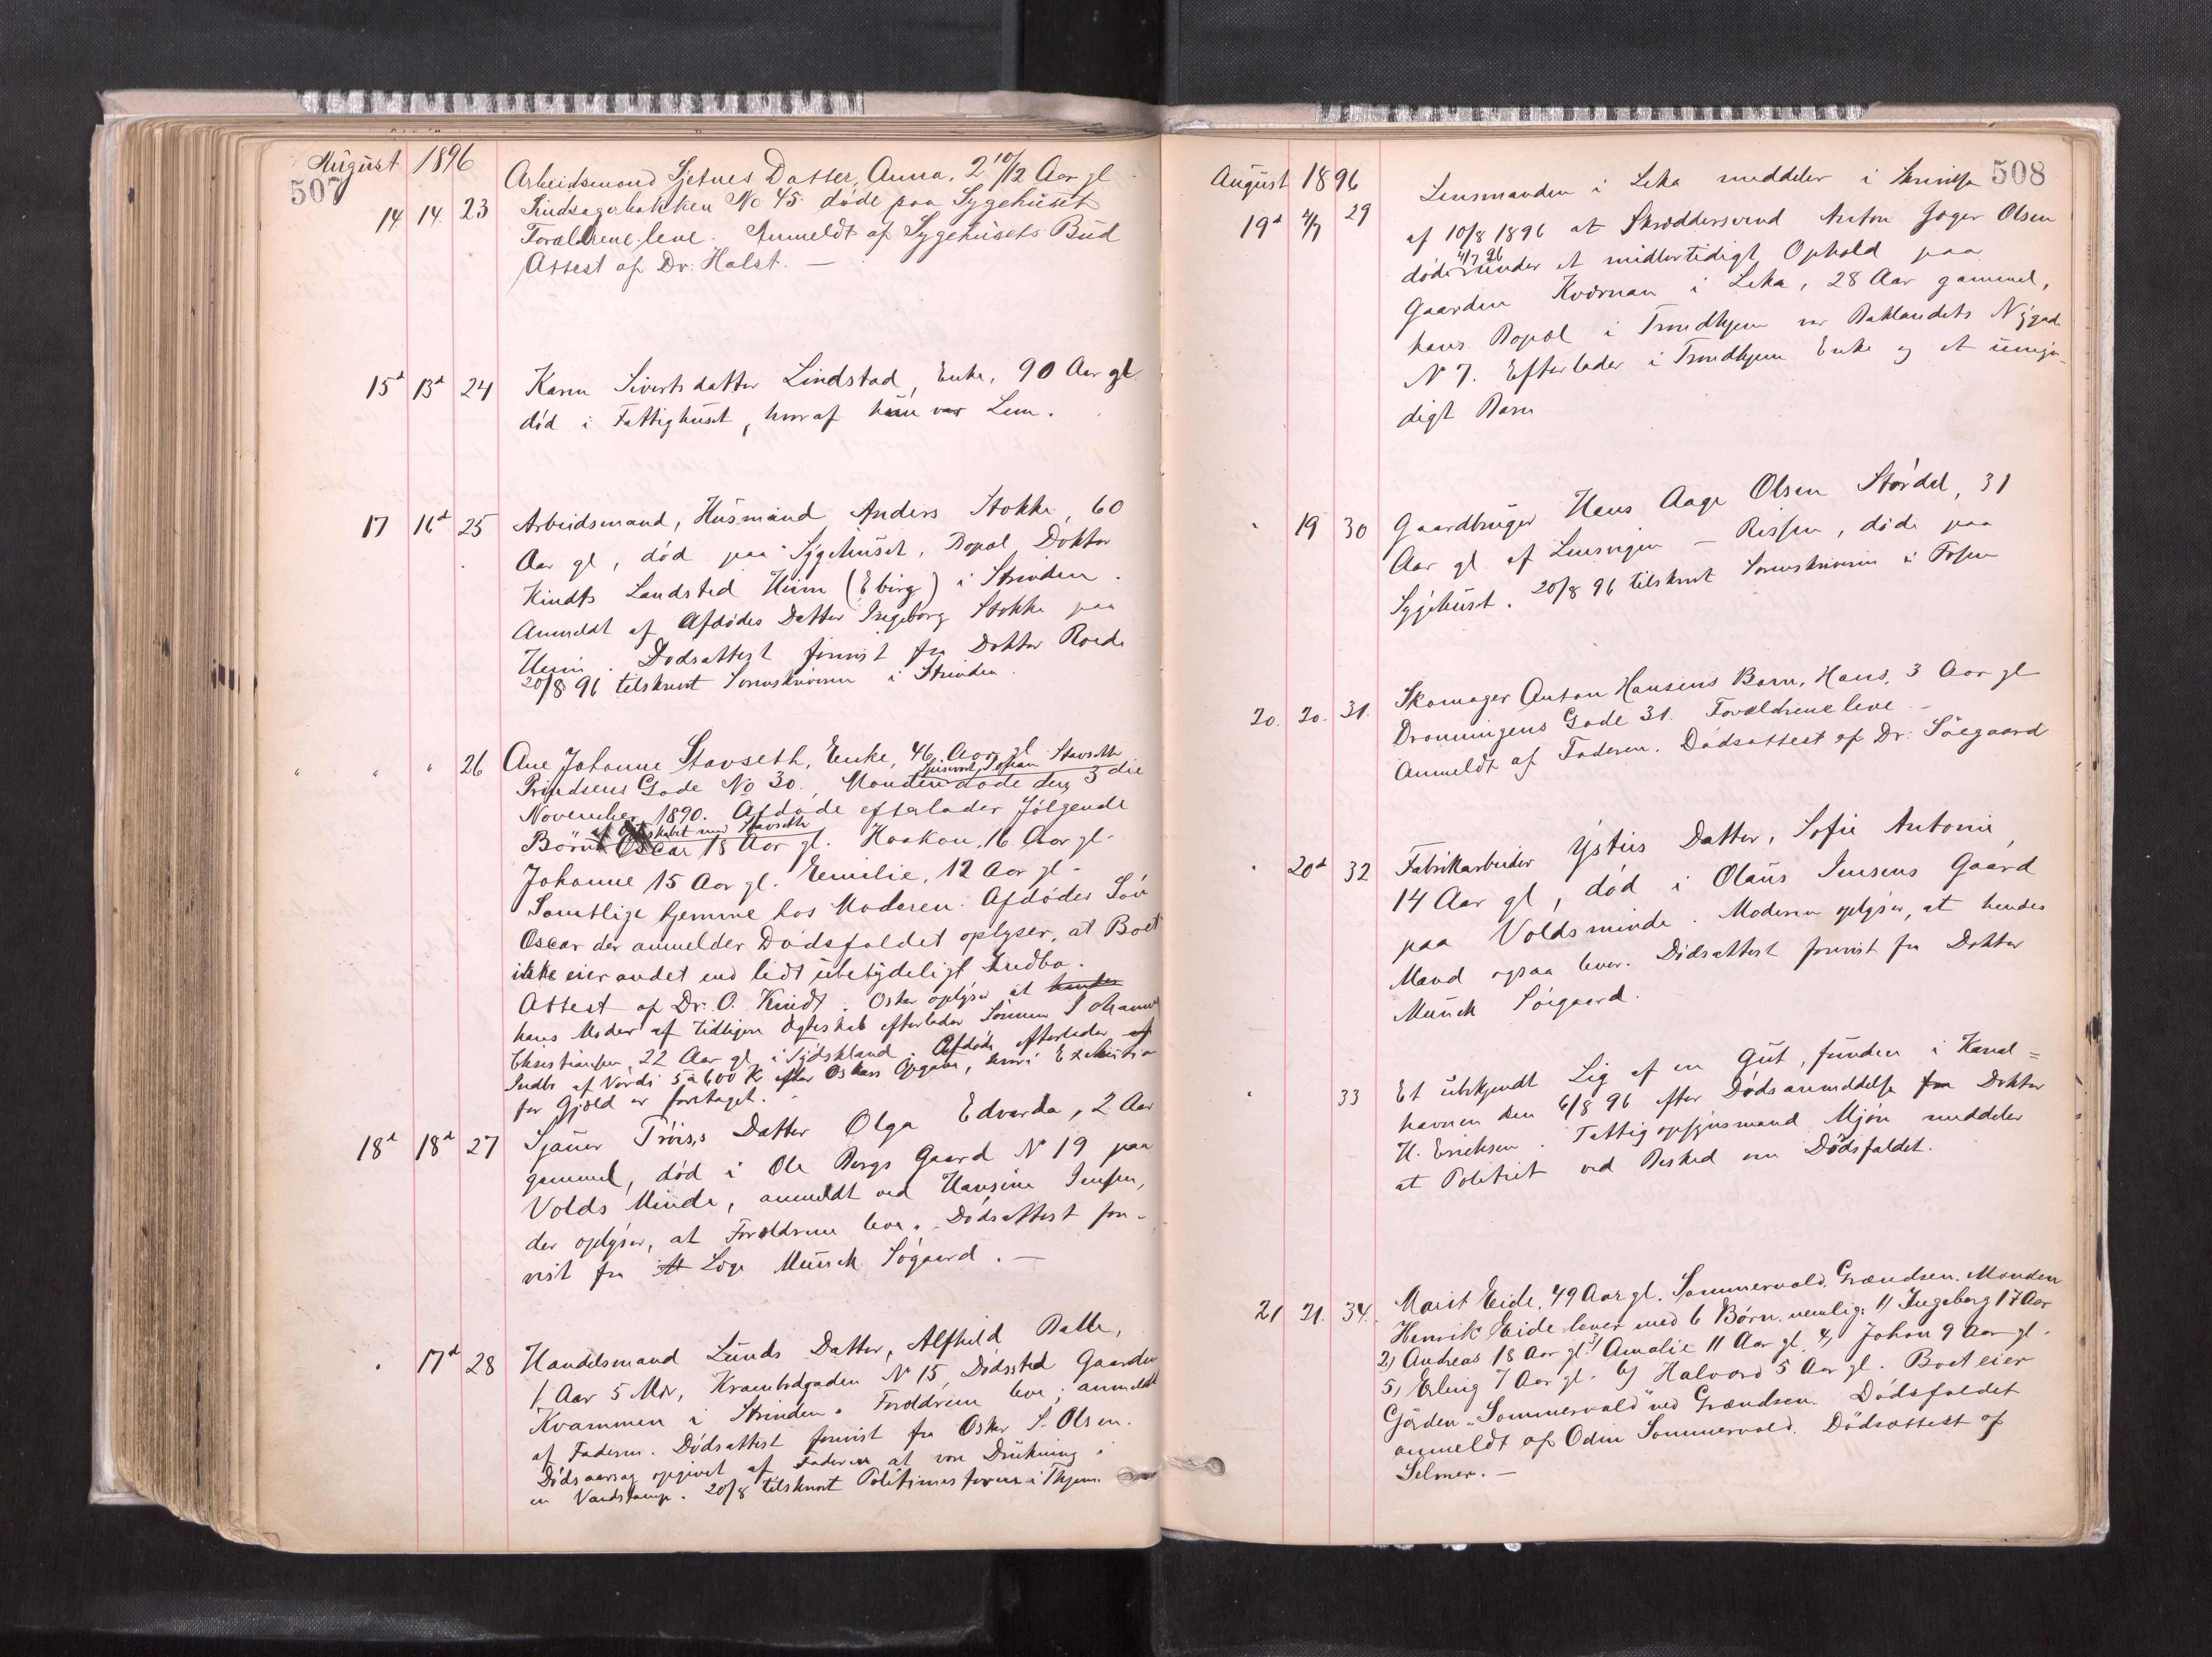 August 1896
507
Arbeidsmand Sjetnes Datter, Anna, 2 10/12 Aar gl
14. 14. 23 Kindsagerbakken No 45 døde paa Sygehuset
Forældrene leve. Anmeldt af Sygehusets Bud
Attest af Dr. Holst. —
15d 13d 24 Karen Sivertsdatter Lindstad, Enke, 90 Aar gl.
død i Fattighuset, hvoraf hun var Lem.
17 16d 25 Arbeidsmand, Husmand Anders Stokke, 60
Aar gl, død paa Sygehuset, Bopæl Doktor
Kindts Landsted Heim (Eberg) i Strinden.
Anmeldt af Afdødes Datter Ingeborg Stokke paa
Heim. Dødsattest forevist fra Doktor Roede
20/8 96 tilskrevt Sorenskriveren i Strinden.
" " " 26 Ane Johanne Stavseth, Enke, 46 Aar gl
Prindsens Gade No 30., Manden Johan Stavseth døde den 3die
November 1890. Afdøde efterlader følgende
Børn af Ægteskabet med Stavseth Oscar 18 Aar gl. Haakon, 16 Aar gl.
Johanne 15 Aar gl. Emilie, 12 Aar gl.
Samtlige hjemme hos Moderen. Afdødes Søn
Oscar der anmelder Dødsfaldet oplyser, at Boet
ikke eier andet end lidt ubetydeligt Indbo.
Attest af Dr. O. Kindt. Oskar oplyser at hendes
hans Moder af tidligere Ægteskab efterlader Sønnen Johannes
Christiansen, 22 Aar gl, i Tydskland. Afdøde efterlader af
Indbo af Værdi 5 a 600 Kr efter Oskars Opgave, hvori Exekution
for Gjæld er foretaget.
18d 18d 27 Sjauer Datter Olga Edvarda, 2 Aar
gammel, død i Ole Bergs Gaard N 19 paa
Volds Minde, anmeldt ved Hansine Jensen,
der oplyser, at Forældrene leve. Dødsattest fore-
vist fra Læge Munch Søgaard. —
" 17d 28 Handelsmand Lunds Datter, Alfhild
1 Aar 5 Mdr, Krambodgaden N 15, Dødssted Gaarden
Kvammen i Strinden. Forældrene leve; anmeldt
af Faderen. Dødsattest forevist fra Oskar S. Olsen.
Dødsaarsag opgivet af Faderen at være Drukning i
en Vanddam. 20/8 tilskrevt Politimesteren i Thjem.
August 1896
508
Lensmanden i Leka meddeler i Skrivelse
19d 4/7 29 af 10/8 1896 at Skræddersvend Anton Olsen
døde 4/7 96 under et midlertidigt Ophold paa
Gaarden Kværnan i Leka, 28 Aar gammel,
hans Bopæl i Trondhjem var Baklandets Nygade
N 7. Efterlader i Trondhjem Enke og et umyn-
digt Barn
" 19 30 Gaardbruger Hans Aage Olsen Størdal, 31
Aar gl af Lensvigen — Rissen, døde paa
Sygehuset. 20/8 96 tilskrevt Sorenskriveren i Fosen
20. 20. 31. Skomager Anton Hansens Barn, Hans, 3 Aar gl
Dronningens Gade 31. Forældrene leve. —
Anmeldt af Faderen. Dødsattest af Dr. Söegaard
" 20d 32 Fabrikarbeider Datter, Sofie Antonie,
14 Aar gl, død i Olaus Jensens Gaard
paa Voldsminde. Moderen oplyser, at hendes
Mand ogsaa lever. Dødsattest forevist fra Doktor
Munch Søegaard.
" 33 Et ubekjendt Lig af en Gut, funden i Kanal=
havnen den 6/8 96 efter Dødsanmeldelse fra Doktor
H. Erichsen. Fattigopsynsmand Mjøn meddeler
at Politiet ved Besked om Dødsfaldet.
21 21. 34. Marit Eide, 49 Aar gl. Sommervold. Grændsen. Manden
Henrik Eide lever med 6 Børn. nemlig: 1) Ingeborg 17 Aar
2) Andreas 18 Aar gl. 3) Amalie 11 Aar gl. 4) Johan 9 Aar gl.
5) Erling 7 Aar gl. 6) Halvard 5 Aar gl. Boet eier
Gården "Sommervold" ved Grændsen. Dødsfaldet
anmeldt af Odin Sommervold. Dødsattest af
Selmer. —